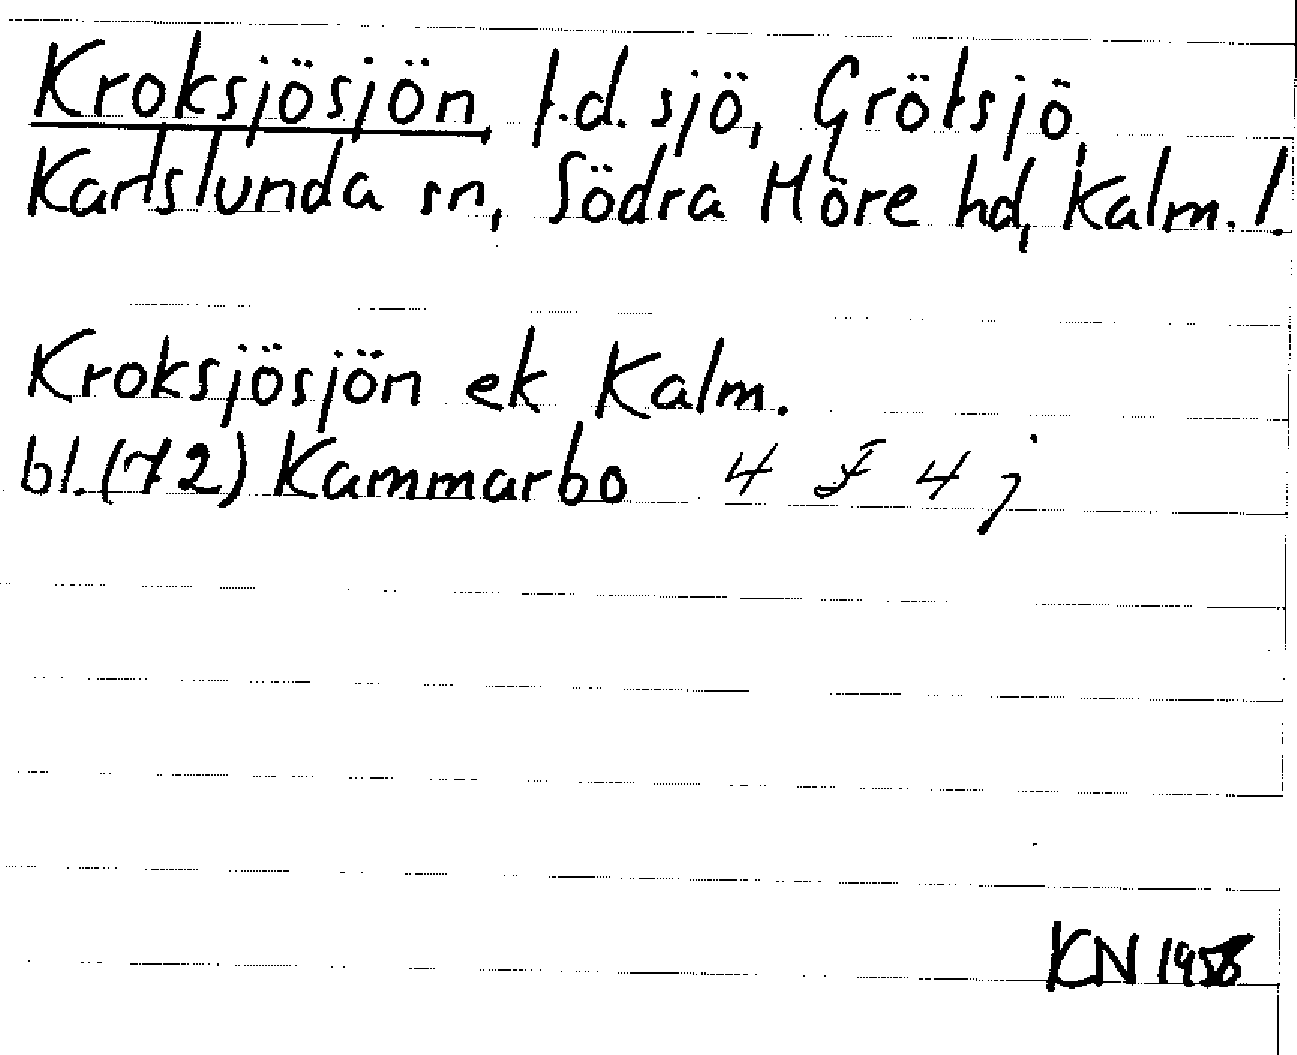 Kroksjösjön, f.d. sjö, Grötsjö
Karlslunda sn, Södra Möre hd, Kalm. l.
Kroksjösjön ek Kalm.
bl. (72) Kammarbo 4 F 4 j
KN 1958